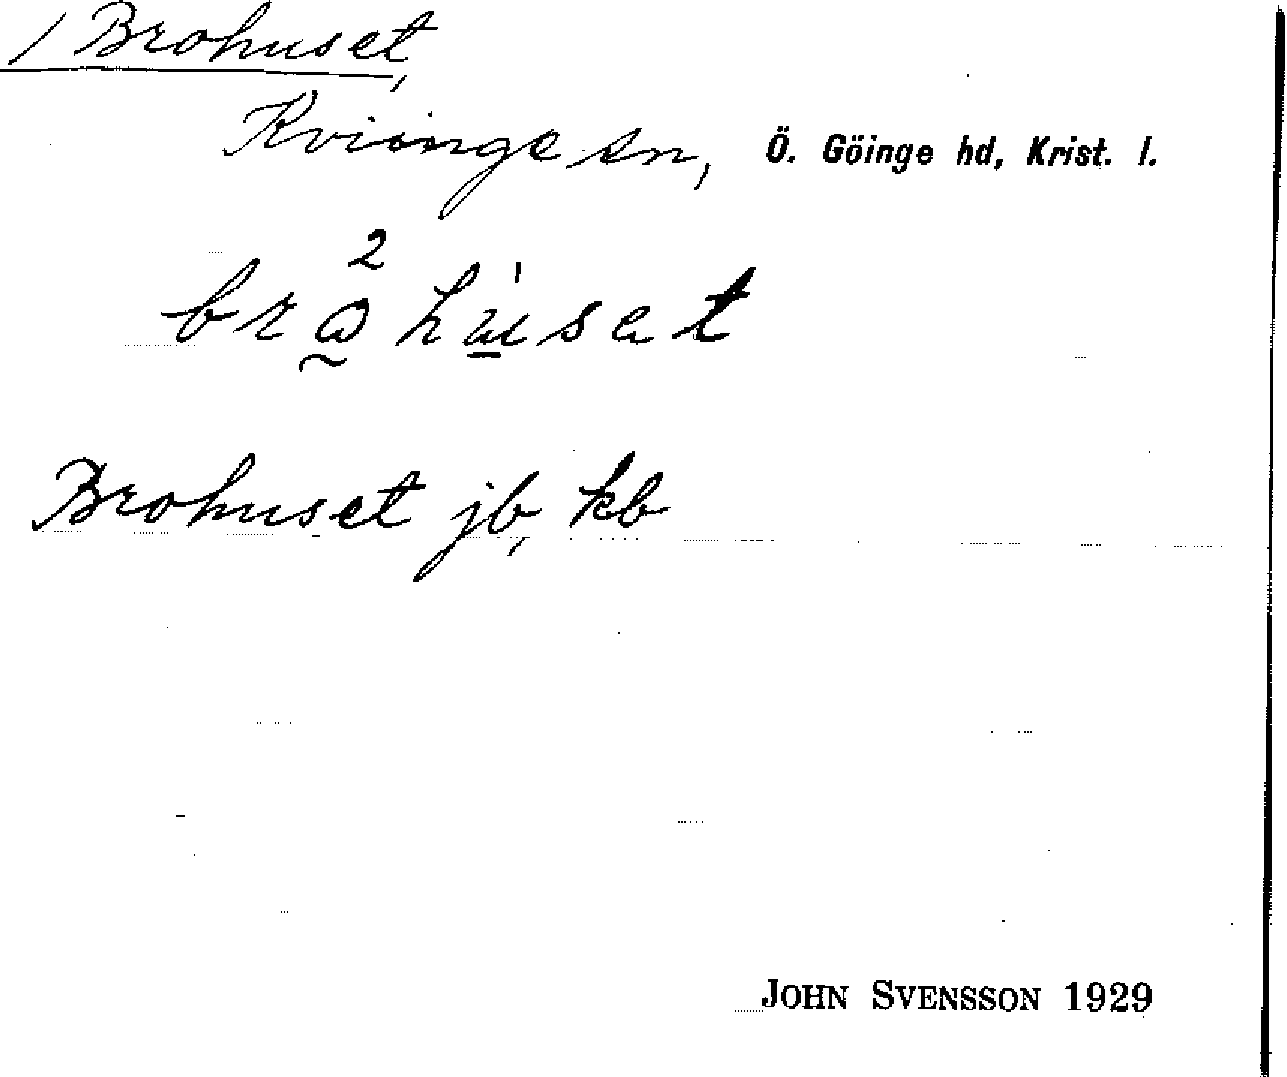 / Brohuset,
Kviinge sn, Ö. Göinge hd, Krist. l.
Brohuset jb, kb
JOHN SVENSSON 1929